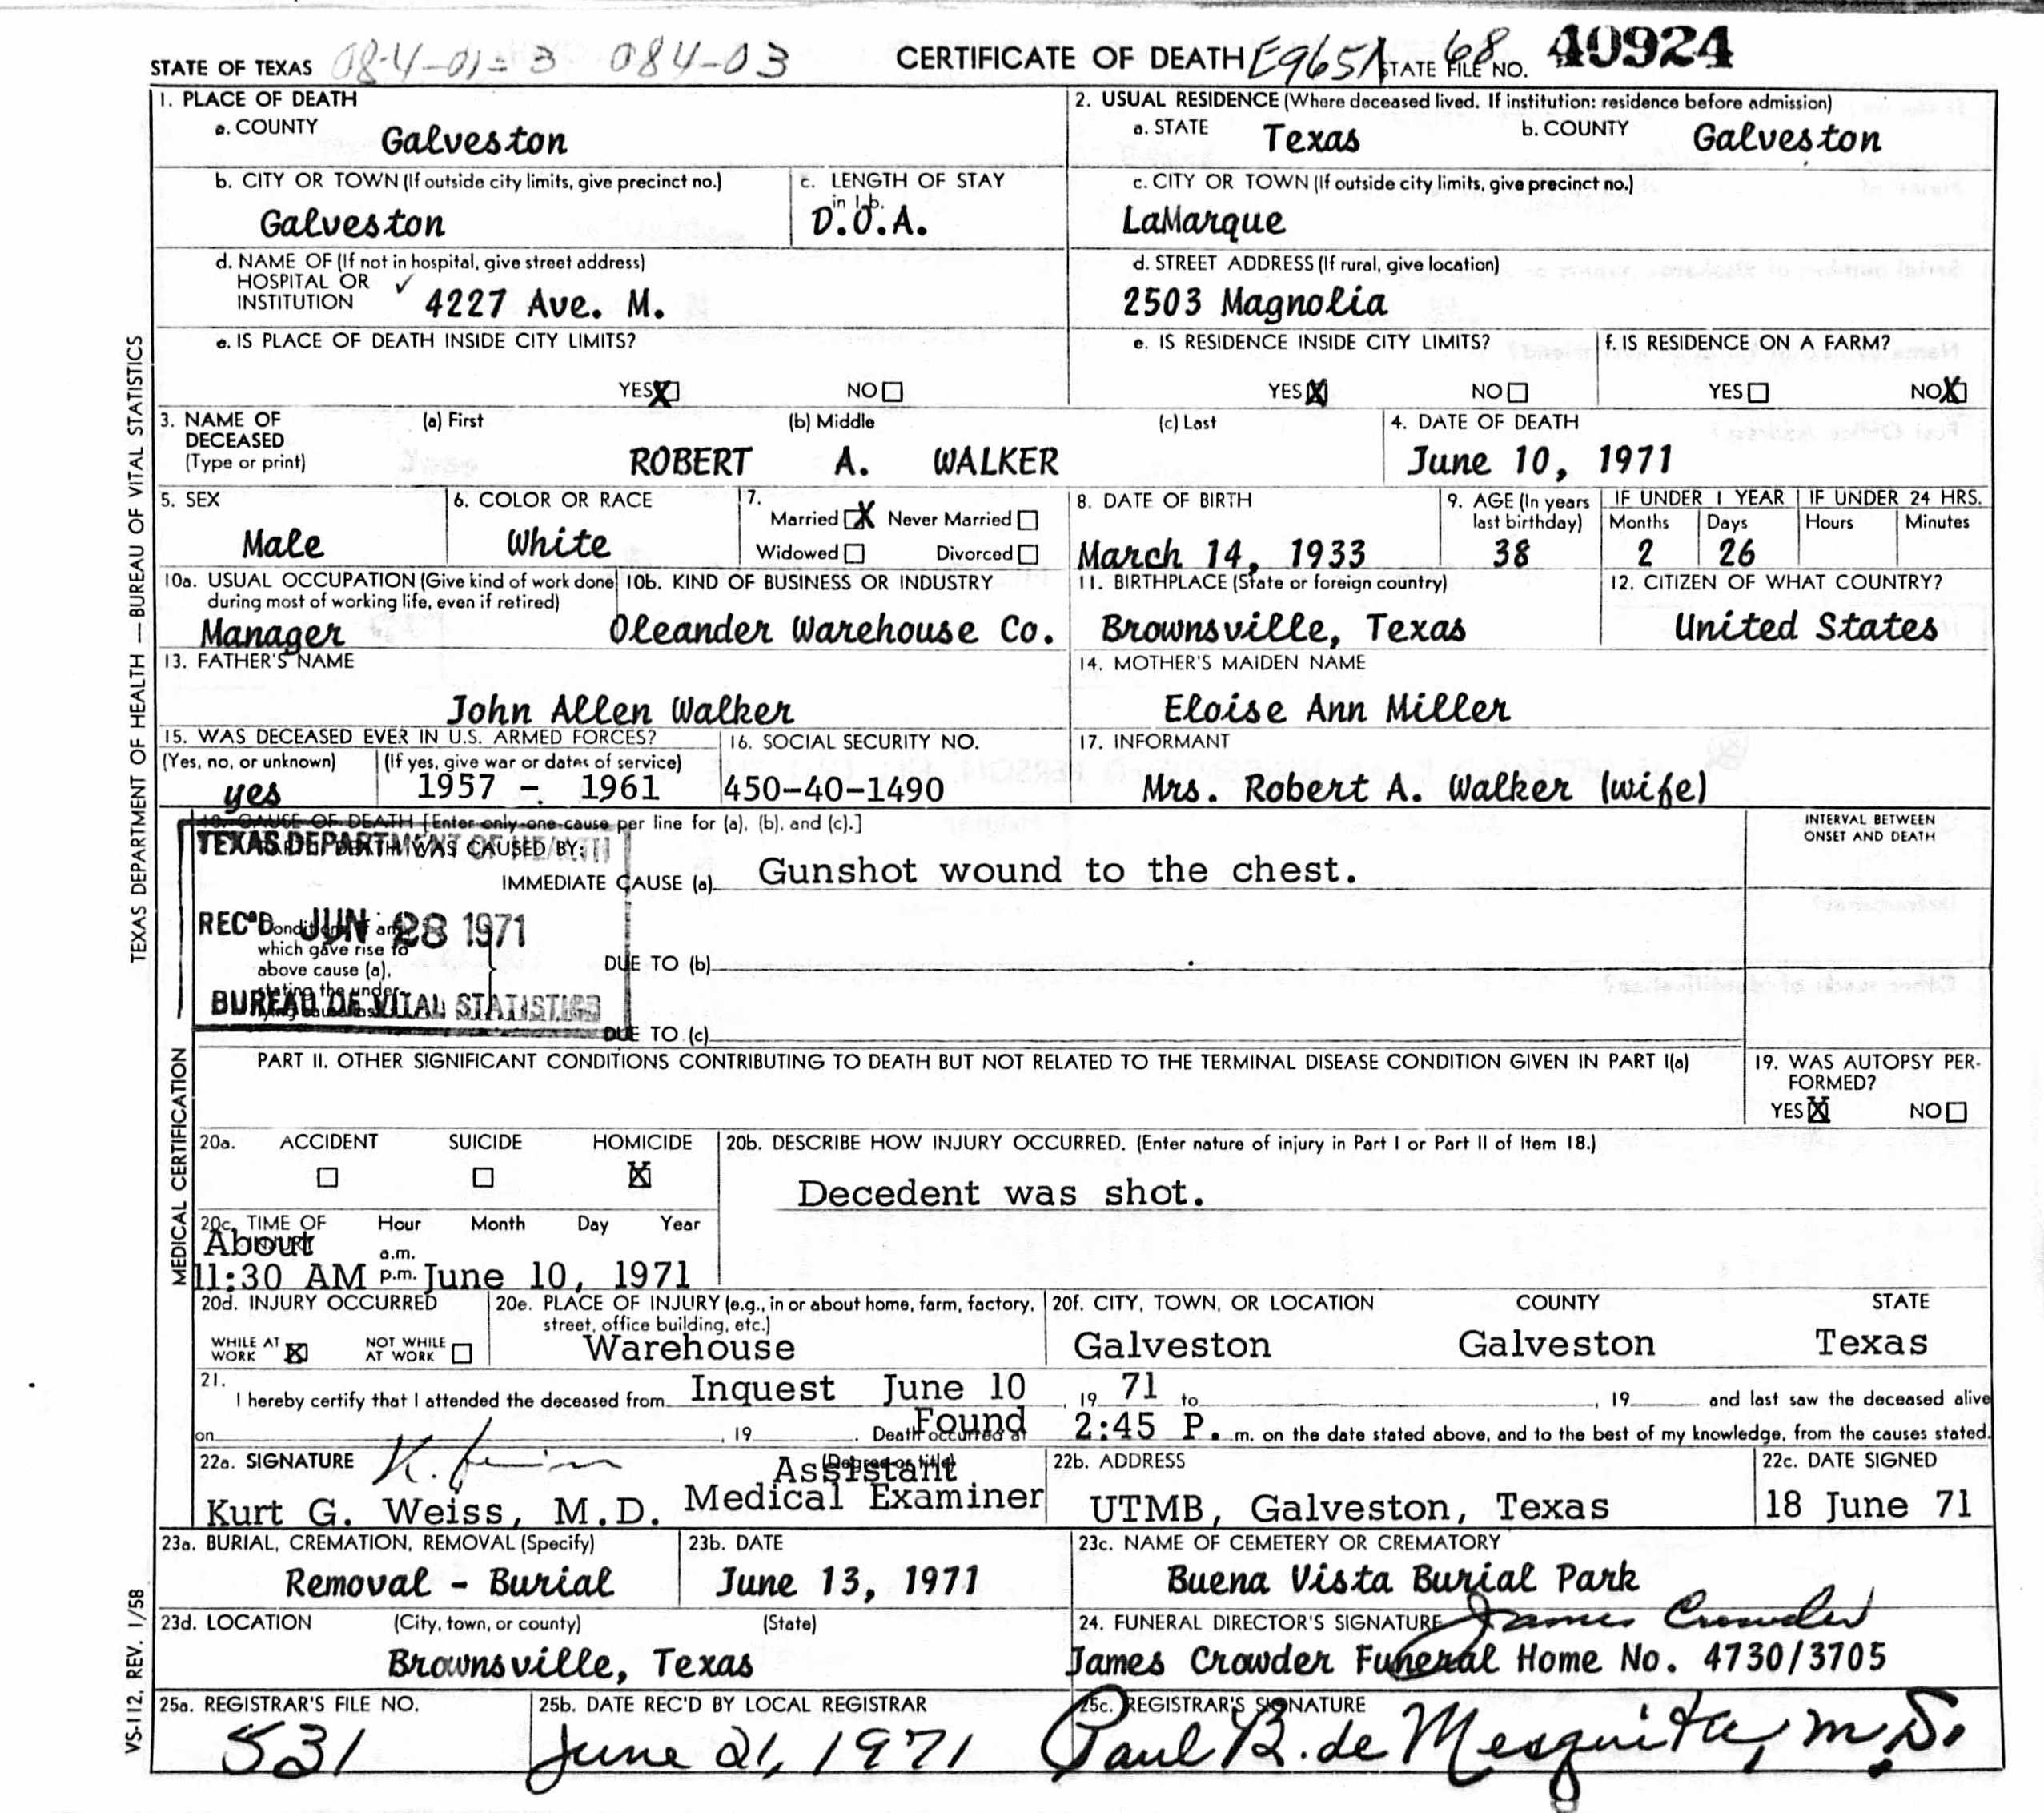 STATE OF TEXAS 084-01-3 084-03 CERTIFICATE OF DEATH E965A STATE FILE NO. 68 40924
1. PLACE OF DEATH
a. COUNTY Galveston
2. USUAL RESIDENCE (Where deceased lived. If institution: residence before admission)
a. STATE Texas b. COUNTY Galveston
b. CITY OR TOWN (If outside city limits, give precinct no.) Galveston
c. LENGTH OF STAY in 1.b. D.O.A.
c. CITY OR TOWN (If outside city limits, give precinct no.)
LaMarque
d. NAME OF (If not in hospital, give street address)
HOSPITAL OR
INSTITUTION ✓ 4227 Ave. M.
d. STREET ADDRESS (If rural, give location)
2503 Magnolia
e. IS PLACE OF DEATH INSIDE CITY LIMITS?
YES X NO
e. IS RESIDENCE INSIDE CITY LIMITS?
YES X NO
f. IS RESIDENCE ON A FARM?
YES NO X
3. NAME OF DECEASED (Type or print) (a) First (b) Middle (c) Last
ROBERT A. WALKER
4. DATE OF DEATH
June 10, 1971
5. SEX
Male
6. COLOR OR RACE
White
7. Married X Never Married
Widowed Divorced
8. DATE OF BIRTH
March 14, 1933
9. AGE (In years last birthday)
38
IF UNDER 1 YEAR
Months Days
2 26
IF UNDER 24 HRS.
Hours Minutes
10a. USUAL OCCUPATION (Give kind of work done during most of working life, even if retired)
Manager
10b. KIND OF BUSINESS OR INDUSTRY
Oleander Warehouse Co.
11. BIRTHPLACE (State or foreign country)
Brownsville, Texas
12. CITIZEN OF WHAT COUNTRY?
United States
13. FATHER'S NAME
John Allen Walker
14. MOTHER'S MAIDEN NAME
Eloise Ann Miller
15. WAS DECEASED EVER IN U.S. ARMED FORCES?
(Yes, no, or unknown) (If yes, give war or dates of service)
yes 1957 - 1961
16. SOCIAL SECURITY NO.
450-40-1490
17. INFORMANT
Mrs. Robert A. Walker (wife)
18. CAUSE OF DEATH [Enter only one cause per line for (a), (b), and (c).]
INTERVAL BETWEEN
ONSET AND DEATH
TEXAS DEPARTMENT OF HEALTH
DEATH WAS CAUSED BY:
IMMEDIATE CAUSE (a) Gunshot wound to the chest.
REC'D JUN 28 1971
Conditions, if any,
which gave rise to
above cause (a),
stating the under-
DUE TO (b)
BUREAU OF VITAL STATISTICS
DUE TO (c)
PART II. OTHER SIGNIFICANT CONDITIONS CONTRIBUTING TO DEATH BUT NOT RELATED TO THE TERMINAL DISEASE CONDITION GIVEN IN PART I(a)
19. WAS AUTOPSY PER-
FORMED?
YES X NO
20a. ACCIDENT SUICIDE HOMICIDE
X
20b. DESCRIBE HOW INJURY OCCURRED. (Enter nature of injury in Part I or Part II of Item 18.)
Decedent was shot.
20c. TIME OF INJURY Hour Month Day Year
About
a.m.
11:30 AM p.m. June 10, 1971
20d. INJURY OCCURRED
WHILE AT WORK X NOT WHILE AT WORK
20e. PLACE OF INJURY (e.g., in or about home, farm, factory, street, office building, etc.)
Warehouse
20f. CITY, TOWN, OR LOCATION COUNTY STATE
Galveston Galveston Texas
21. I hereby certify that I attended the deceased from Inquest June 10, 19 71 to , 19 and last saw the deceased alive
on , 19 . Death occurred at Found 2:45 P. m. on the date stated above, and to the best of my knowledge, from the causes stated.
22a. SIGNATURE (Degree or title)
Kurt G. Weiss, M.D. Assistant Medical Examiner
22b. ADDRESS
UTMB, Galveston, Texas
22c. DATE SIGNED
18 June 71
23a. BURIAL, CREMATION, REMOVAL (Specify)
Removal - Burial
23b. DATE
June 13, 1971
23c. NAME OF CEMETERY OR CREMATORY
Buena Vista Burial Park
23d. LOCATION (City, town, or county) (State)
Brownsville, Texas
24. FUNERAL DIRECTOR'S SIGNATURE James Crowder
James Crowder Funeral Home No. 4730/3705
25a. REGISTRAR'S FILE NO.
531
25b. DATE REC'D BY LOCAL REGISTRAR
June 21, 1971
25c. REGISTRAR'S SIGNATURE
Paul B. de Mesquita, M.D.
TEXAS DEPARTMENT OF HEALTH — BUREAU OF VITAL STATISTICS
MEDICAL CERTIFICATION
VS-112, REV. 1/58